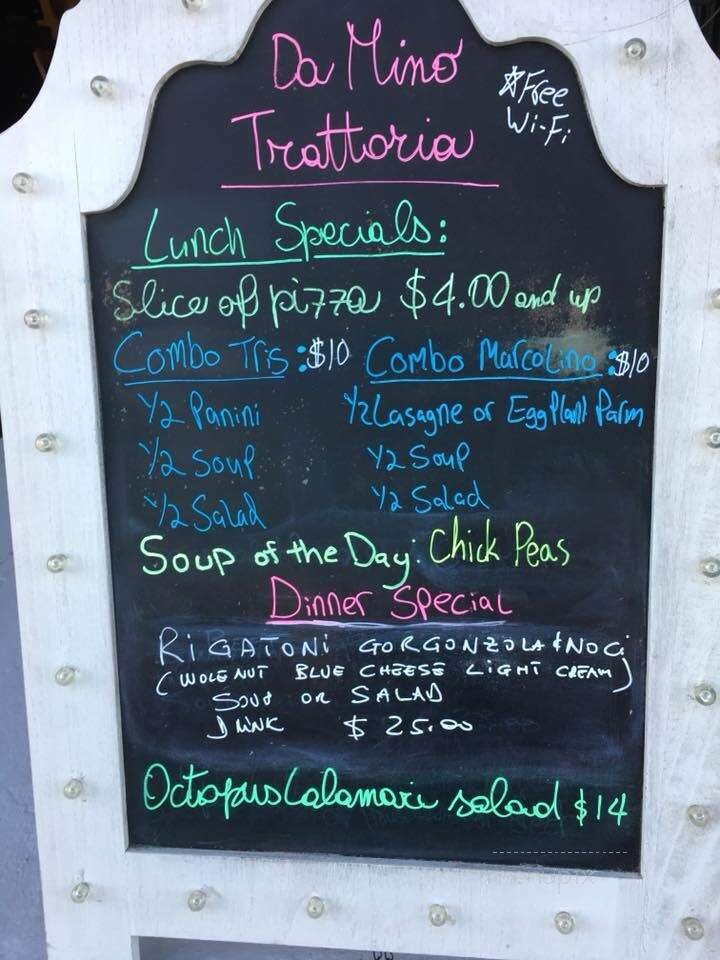 Da Mino
Trattoria
☆Free
Wi-Fi
Lunch Specials:
Slice of pizza $4.00 and up
Combo Tris: $10
1/2 Panini
1/2 Soup
1/2 Salad
Combo Marcolino: $10
1/2 Lasagne or Egg Plant Parm
1/2 Soup
1/2 Salad
Soup of the Day: Chick Peas
Dinner Special
RIGATONI GORGONZOLA & NOCI
(WOLE NUT BLUE CHEESE LIGHT CREAM)
SOUP OR SALAD
DRINK $25.00
Octopus Calamari salad $14